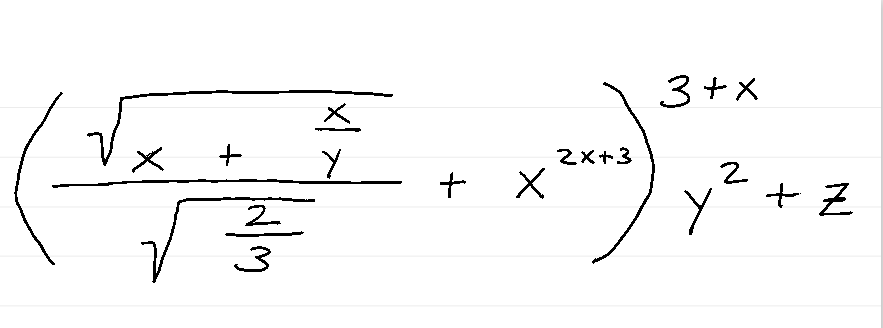 \left( \frac{\sqrt{x + \frac{x}{y}}}{\sqrt{\frac{2}{3}}} + x^{2x+3} \right)^{3+x} y^2 + z